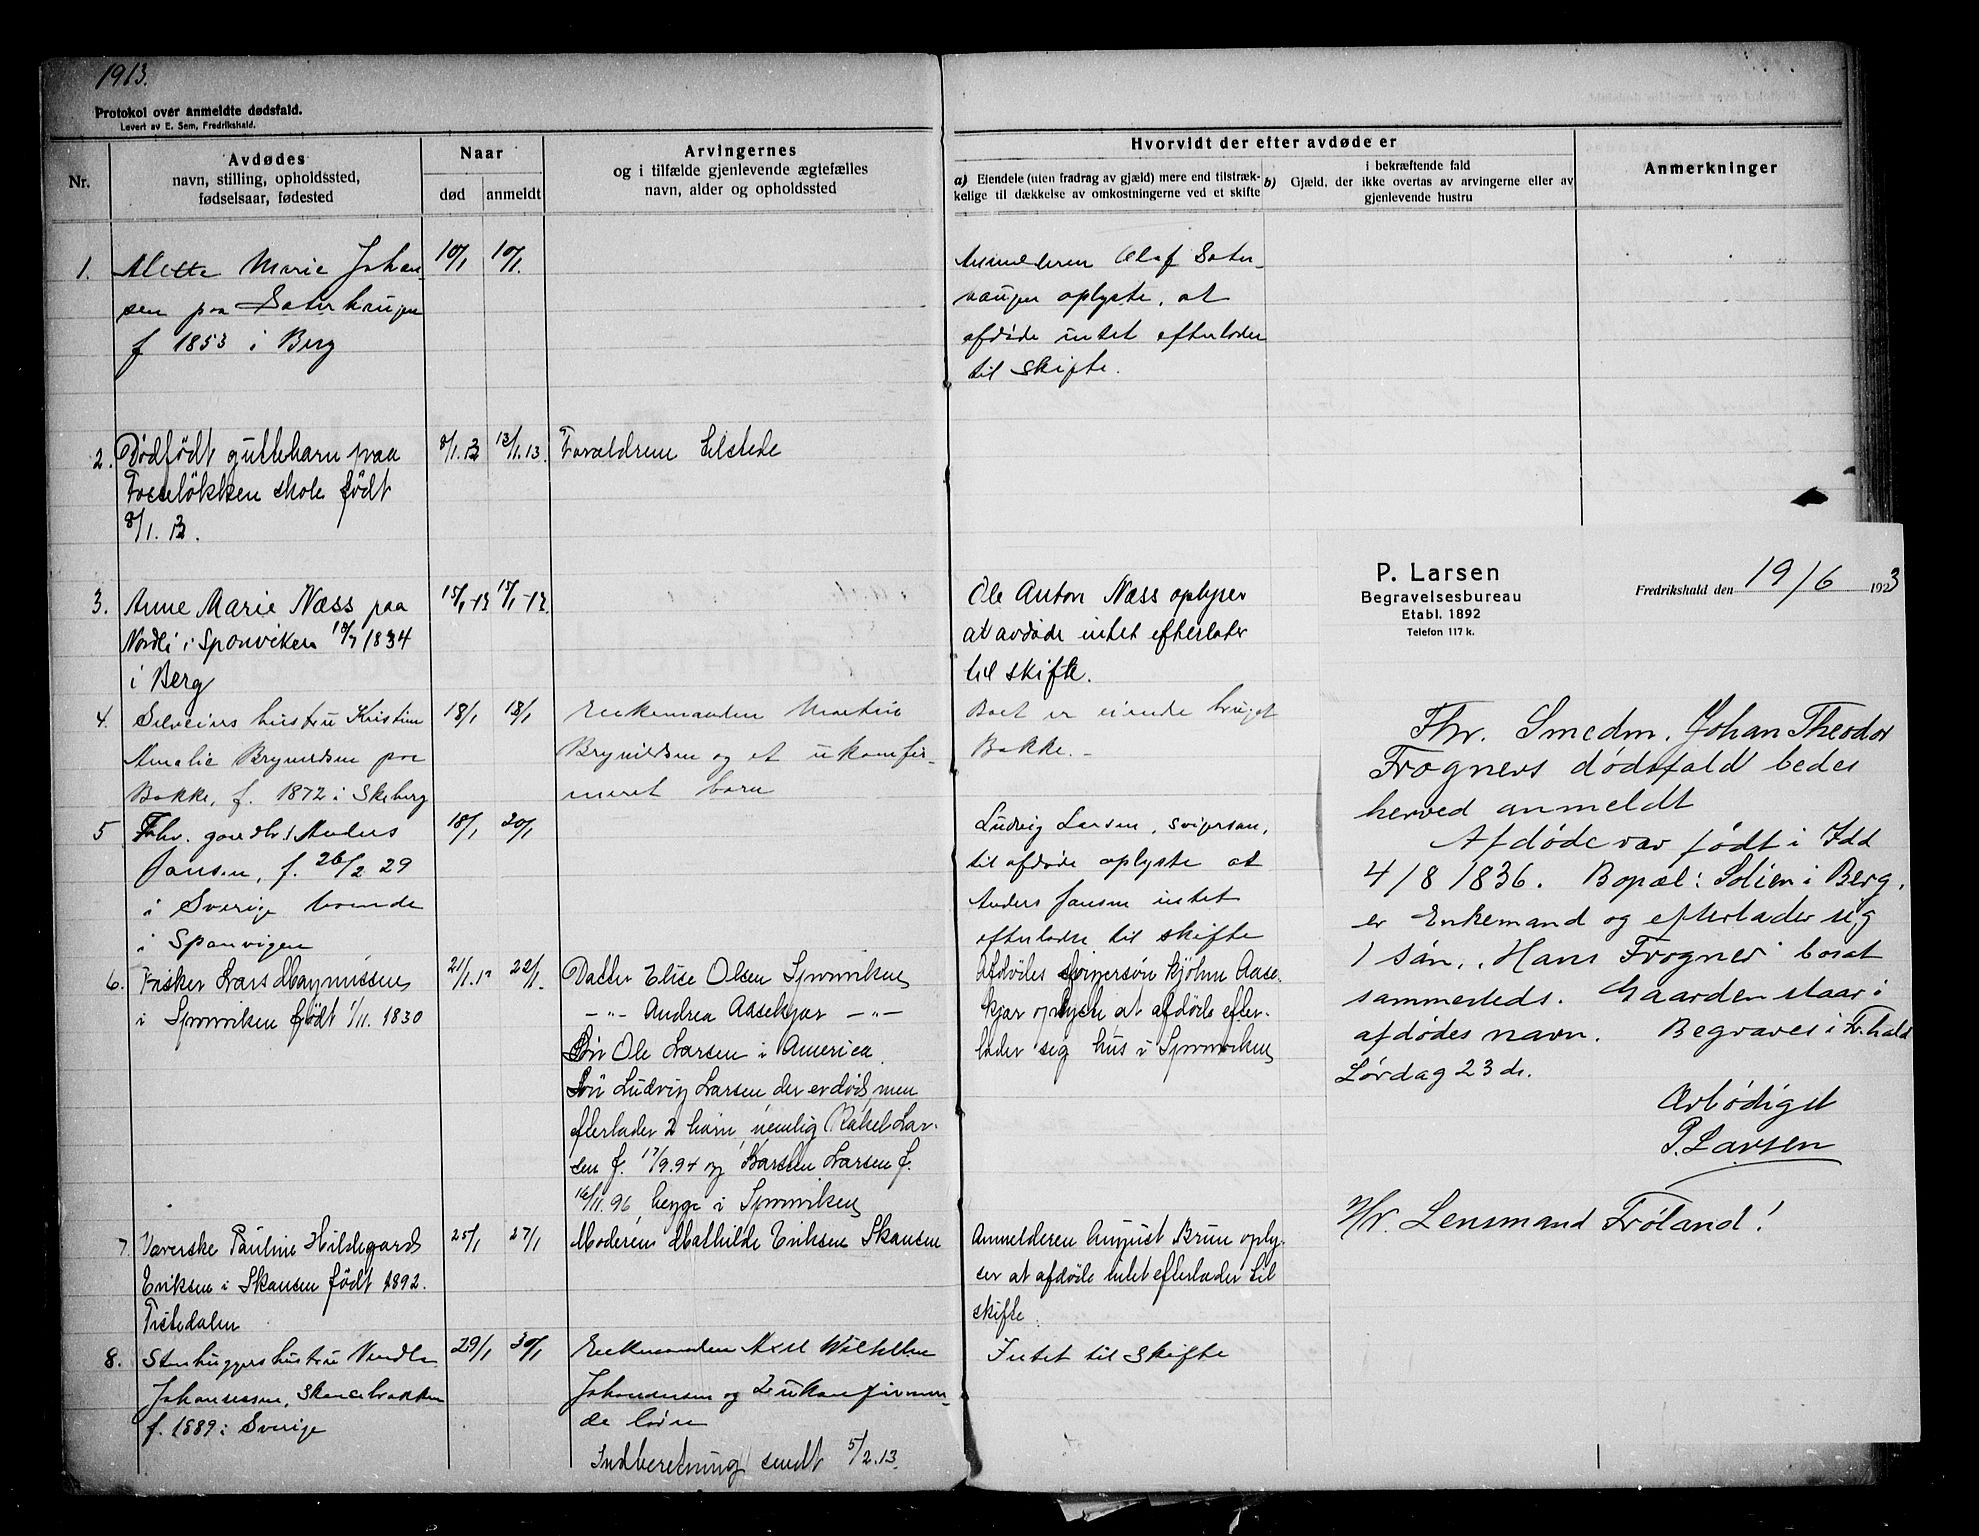 1913.
Protokol over anmeldte dødsfald.
Levert av E. Sem, Fredrikshald.
Nr.
Avdødes
navn, stilling, opholdssted,
fødselsaar, fødested
Naar
død
anmeldt
Arvingernes
og i tilfælde gjenlevende ægtefælles
navn, alder og opholdssted
Hvorvidt der efter avdøde er
a) Eiendele (uten fradrag av gjæld) mere end tilstræk-
kelige til dækkelse av omkostningerne ved et skifte
i bekræftende fald
b) Gjæld, der ikke overtas av arvingerne eller av
gjenlevende hustru
Anmerkninger
1.
Alette Marie Johan
sen paa
f 1853 i Berg
10/1
10/1.
Anmelderen Olaf Sater-
haugen oplyste, at
afdøde intet efterlader
til skifte.
2.
Dødfødt guttebarn paa
Fosseløkken skole født
8/1. 13.
8/1. 13
13/1. 13.
Forældrene Tilstede
3.
Anne Marie Næss paa
Nordli i Sponviken 18/7 1834
i Berg
15/1-13
15/1-13.
Ole Anton Næss oplyser
at avdøde intet efterlater
til skifte.
4.
hustru Kristine
Amalie Brynildsen paa
Bakke, f. 1872 i Skeberg
18/1
18/1
Enkemanden Martin
Brynildsen og et ukonfir-
meret barn
Boet er eiende bruget
Bakke.-
5
Fhv. gaardbr. Anders
Jansen, f. 26/2 29
i Sverige boende
i Sponvigen
18/1
20/1
Ludvig Larsen, svigersøn,
til afdøde oplyste at
Anders Jansen intet
efterlader til skifte
6.
Fisker Lars Magnussen
i Sponviken født 1/11. 1830
21/1. 13
22/1.
Datter Elise Olsen Sponviken
-"- Andrea Aasekjær -"-
Søn Ole Larsen i America
Søn Ludvig Larsen der er død, men
efterlader 2 barn, nemlig Rakel Lar-
sen f. 17/9.94 og Karsten Larsen f.
16/11.96 begge i Sponviken
Afdødes svigersøn Kjøhn Aase-
kjær oplyste at afdøde efter-
lader sig hus i Sponviken
7.
Væverske Pauline Hildegard
Eriksen i Skansen født 1892.
Tistedalen
25/1
27/1
Moderen Mathilde Eriksen Skansen
Anmelderen August Brun oply-
ser at afdøde intet efterlader til
skifte.
8.
Stenhuggers hustru Vendla
Johannessen,
f. 1889 i Sverige
29/1
30/1
Enkemanden Axel Wilhelm
Johannessen og 2 ukonfirmer-
de børn
Intet til skifte
Indberetning sendt 5/2.13.
P. Larsen
Begravelsesbureau
Etabl. 1892
Telefon 117 k.
Fredrikshald den 19/6 1923
Fhv. Smedm. Johan Theodor
Frogners dødsfald bedes
herved anmeldt
Afdøde var født i Idd
4/8 1836. Bopæl: Solien i Berg,
er Enkemand og efterlader sig
1 søn, Hans Frogner bosat
sammesteds. Gaarden staar i
afdødes navn. Begraves i Fr.hald
Lørdag 23 ds.
Ærbødigst
P. Larsen
Hr. Lensmand Frøland!